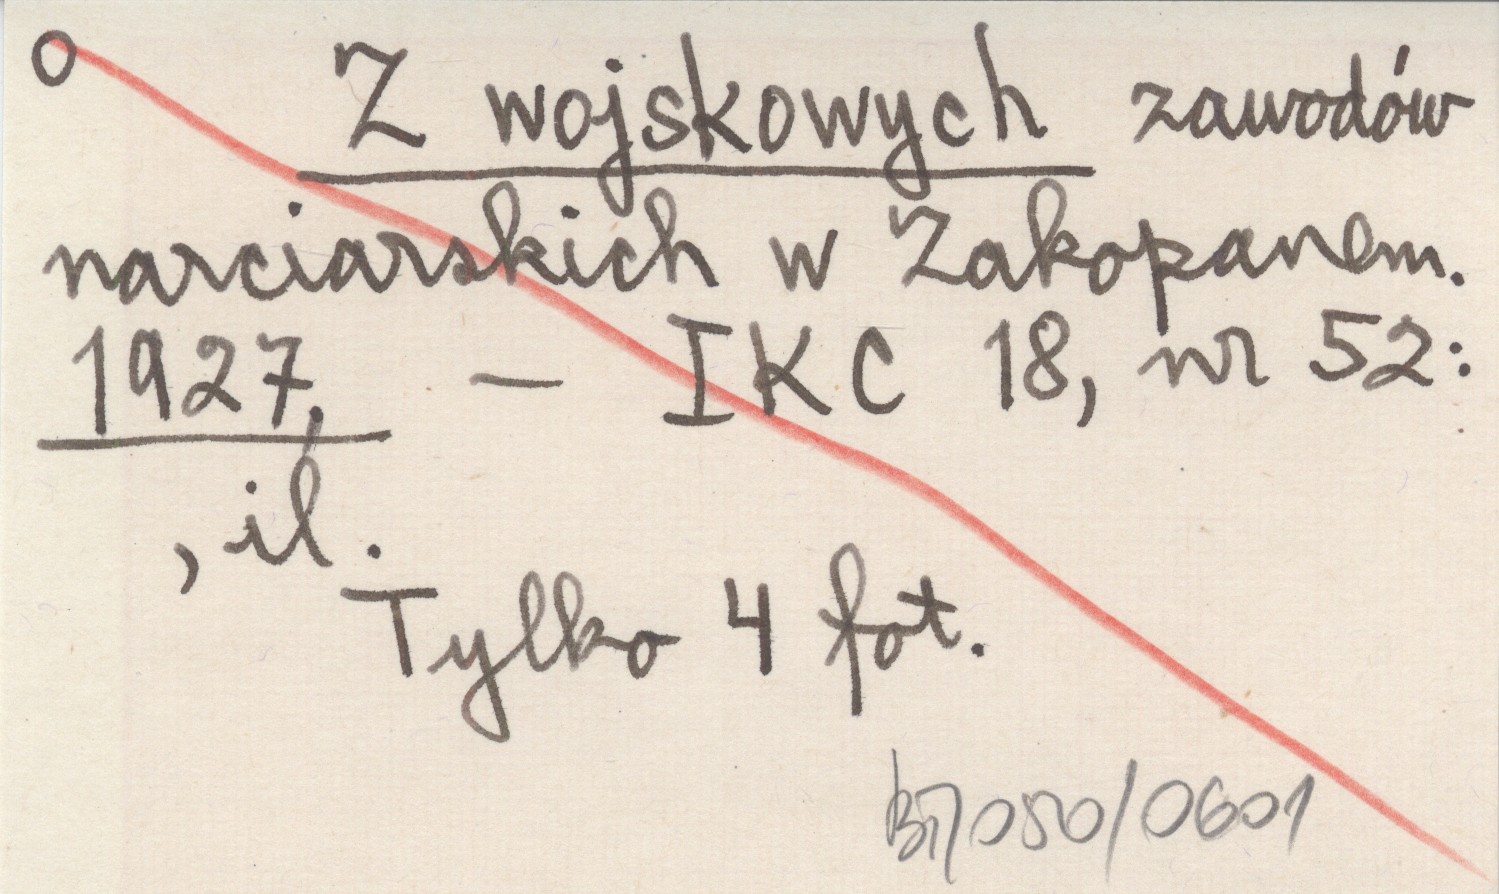 O Z wojskowych zawodów
narciarskich w Zakopanem.
1927, — IKC 18, nr 52:
, il.
Tylko 4 fot.
050/0601